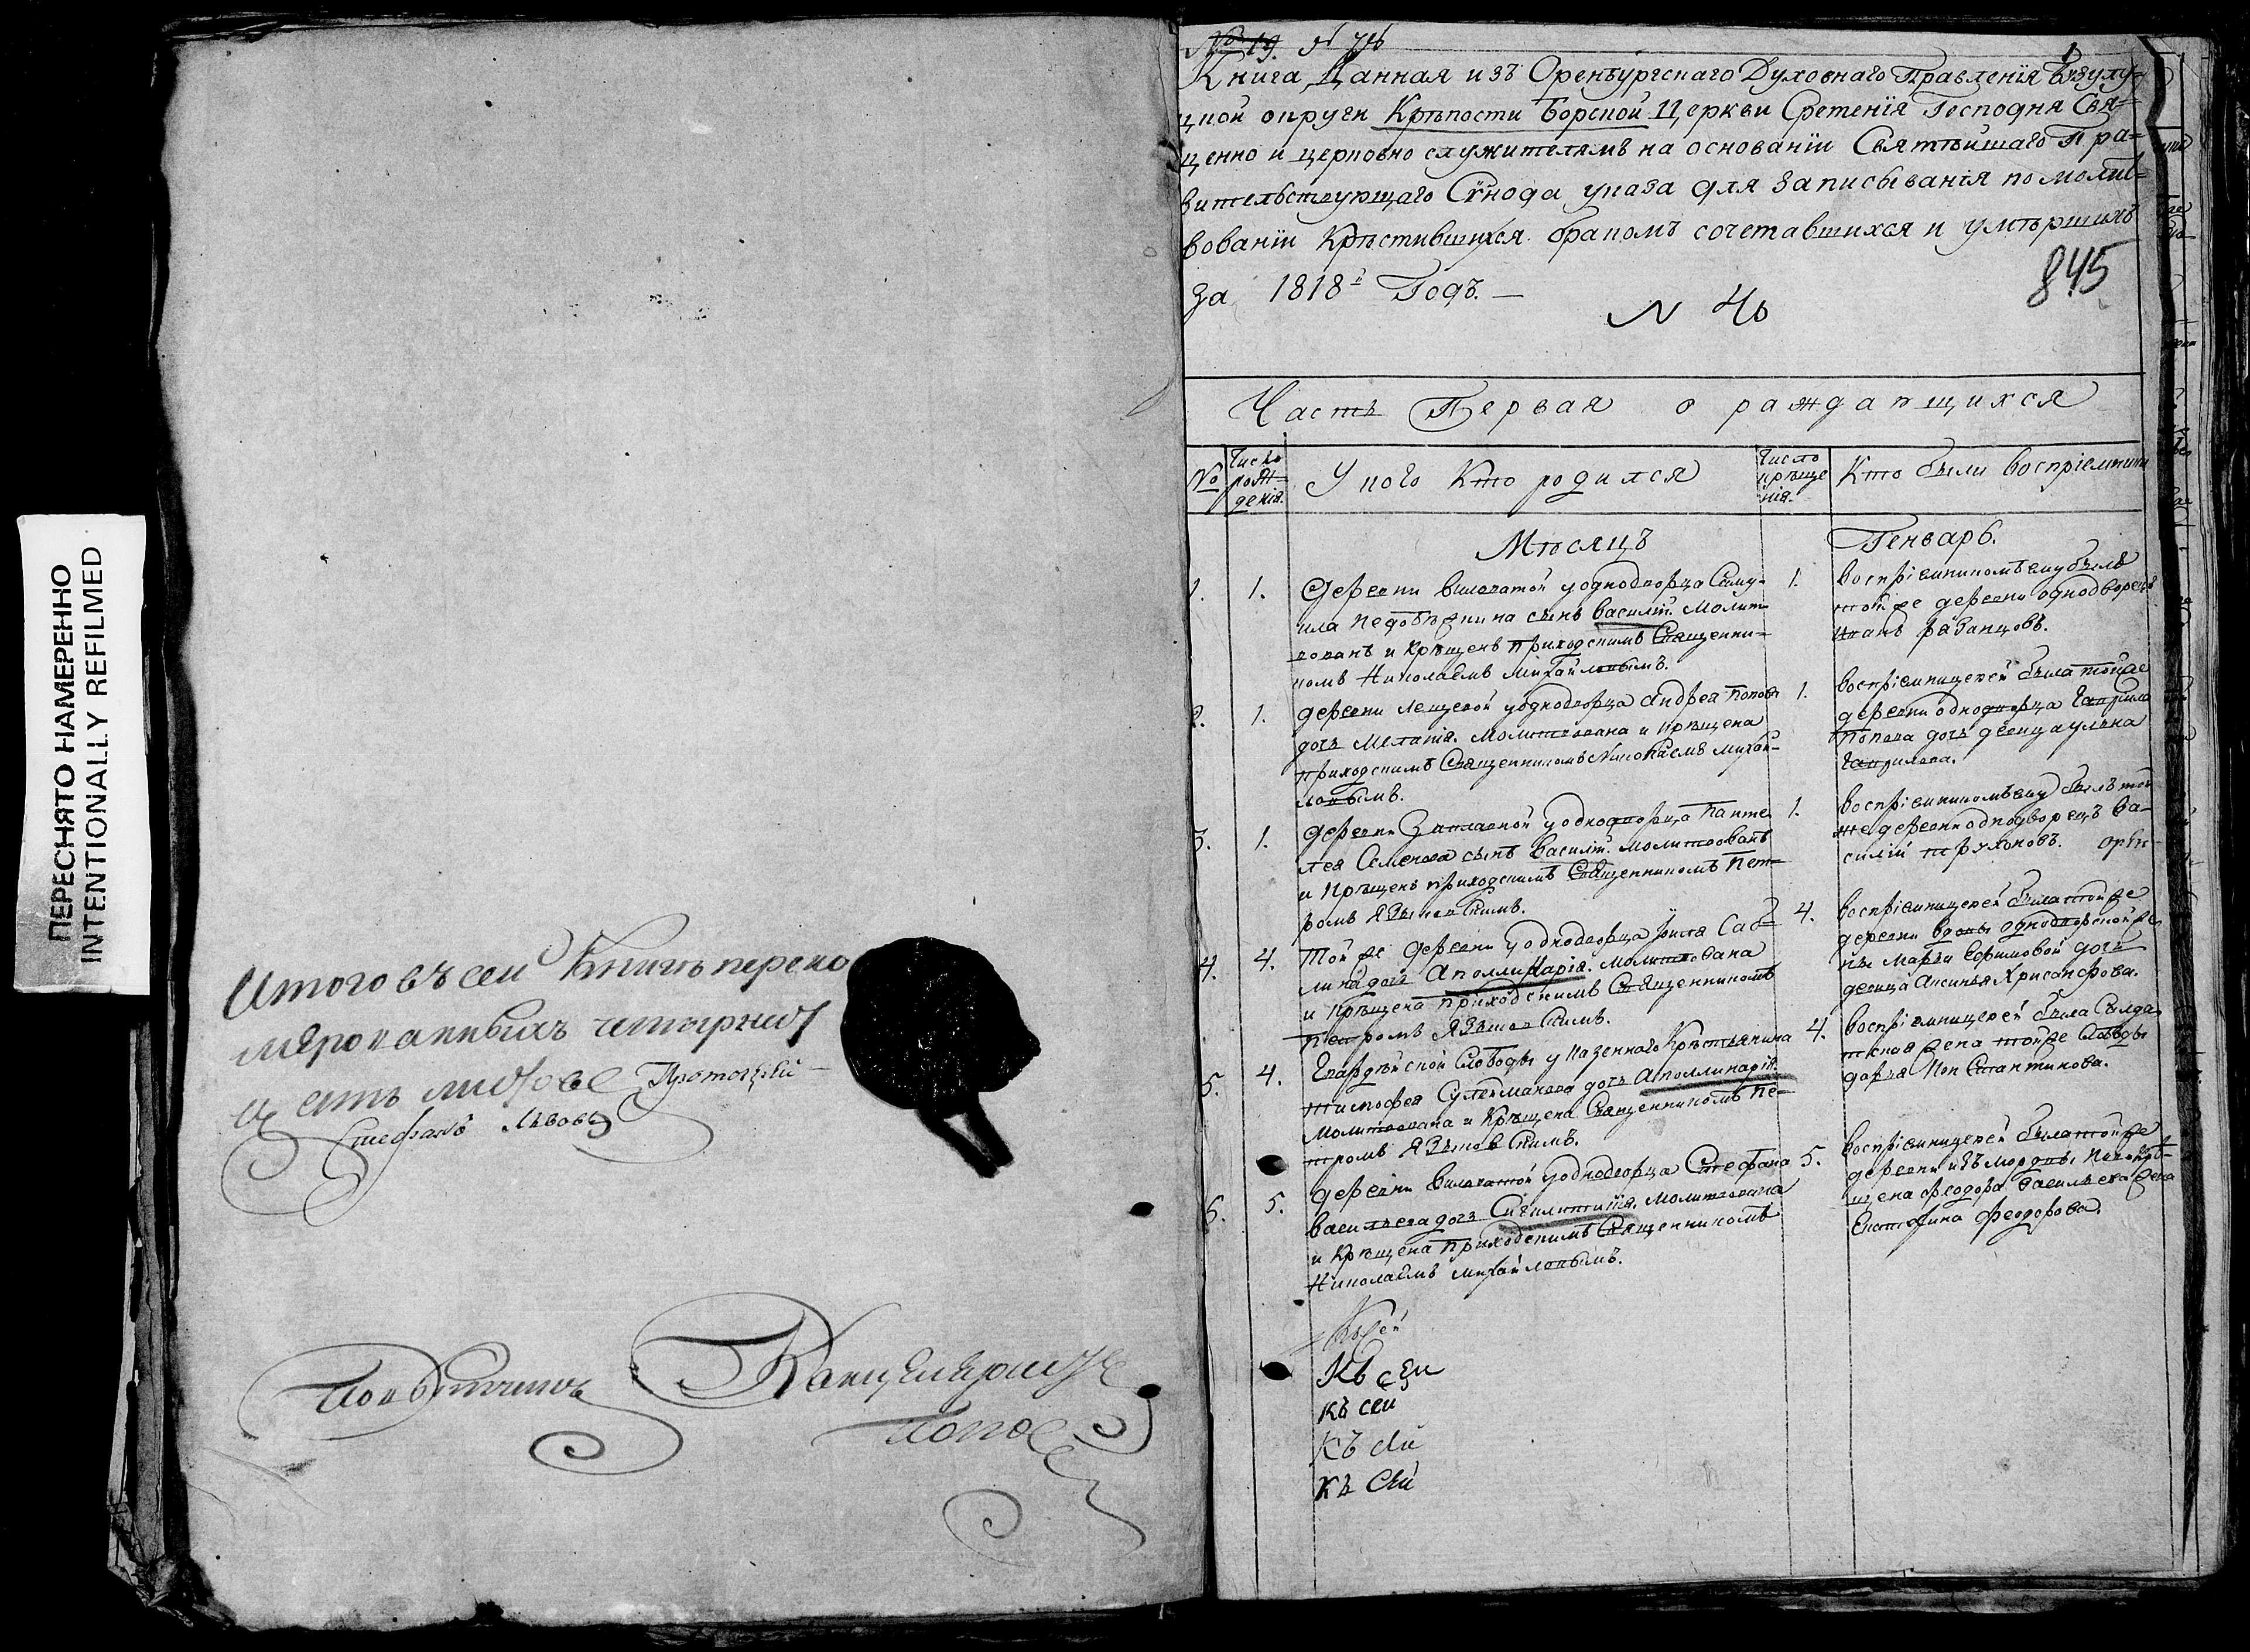 ПЕРЕСНЯТО НАМЕРЕННО
INTENTIONALLY REFILMED
Итого въ сей Книгѣ перено
мерованныхъ четырнат
цать листовъ Протоіерей
Стефанъ Львовъ
Повытчикъ Канцеляристъ
Попов
№ 19.
1
Книга Данная изъ Оренбургскаго Духовнаго Правленїя Бузулу-
цкой округи Крѣпости Борской Церкви Сретенїя Господня Свя-
щенно и церковно служителямъ на основанїи Святѣйшаго Пра-
вительствующаго Сѵнода указа для записыванїя по молит-
вованїи Крѣстившихся бракомъ сочетавшихся и умѣршихъ
За 1818й Годъ. —
845
N 46
Часть Первая о раждающихся
№ Число рож-денїя. У кого Кто родился Число крѣще нїя. Кто были Воспрїемники
Мѣсяцъ Генварь.
1. 1. Деревни Виловатой у однодворца Саму-
ила Недобѣжкина сынъ Василїй. Молит-
вованъ и Крѣщенъ приходскимъ Священни-
комъ Николаемъ Михайловымъ.
1. Воспрїемникомъ ему былъ
той же деревни однодворецъ
Иванъ Рязанцовъ.
2. 1. деревни Лещевой у однодворца Андрея Попова
дочь Меланїя. Молитвована и крѣщена
приходскимъ Священникомъ Николаемъ Михай-
ловымъ.
1. Воспрїемницей была тойже
деревни однодворца Гаврила
Попова дочь девица Ульяна
Гаврилова.
3. 1. деревни Заплавной у однодворца Панте
лея Семенова сынъ Василїй. Молитвованъ
и Крѣщенъ приходскимъ Священникомъ Пет-
ромъ Языковскимъ.
1. Воспрїемникомъ ему былъ той
же деревни однодворецъ Ва-
силїй Трухановъ.
4. 4. Той же деревни у однодворца
дочь Аполлинарїя. Молитвована
и Крѣщена приходскимъ Священникомъ
Петромъ Языковскимъ.
4. Воспрїемницей была той же
деревни вдовы однодворской же-
ны Марѳы Ефимовой дочь
девица Аксинья Хрисанфова.
5. 4. Елардѣйской Слободы у казеннаго Крѣстьянина
Тимофея Сулейманова дочь Аполлинарїя.
Молитвована и Крѣщена Священникомъ Пе-
тромъ Языковскимъ.
4. Воспрїемницей была Салда
тская жена той же Слободы
дарья Константинова.
6. 5. деревни Виловатой у однодворца Стефана
Васильева дочь Сигклитикїя. Молитвована
и Крѣщена приходскимъ Священникомъ
Николаемъ Михайловымъ.
5. Воспрїемницей была той же
деревни изъ мордвы новокрѣ-
щена Феодора Васильева жена
Екатерина Феодорова.
Къ сей
Къ сей
къ сей
къ сей
къ сей